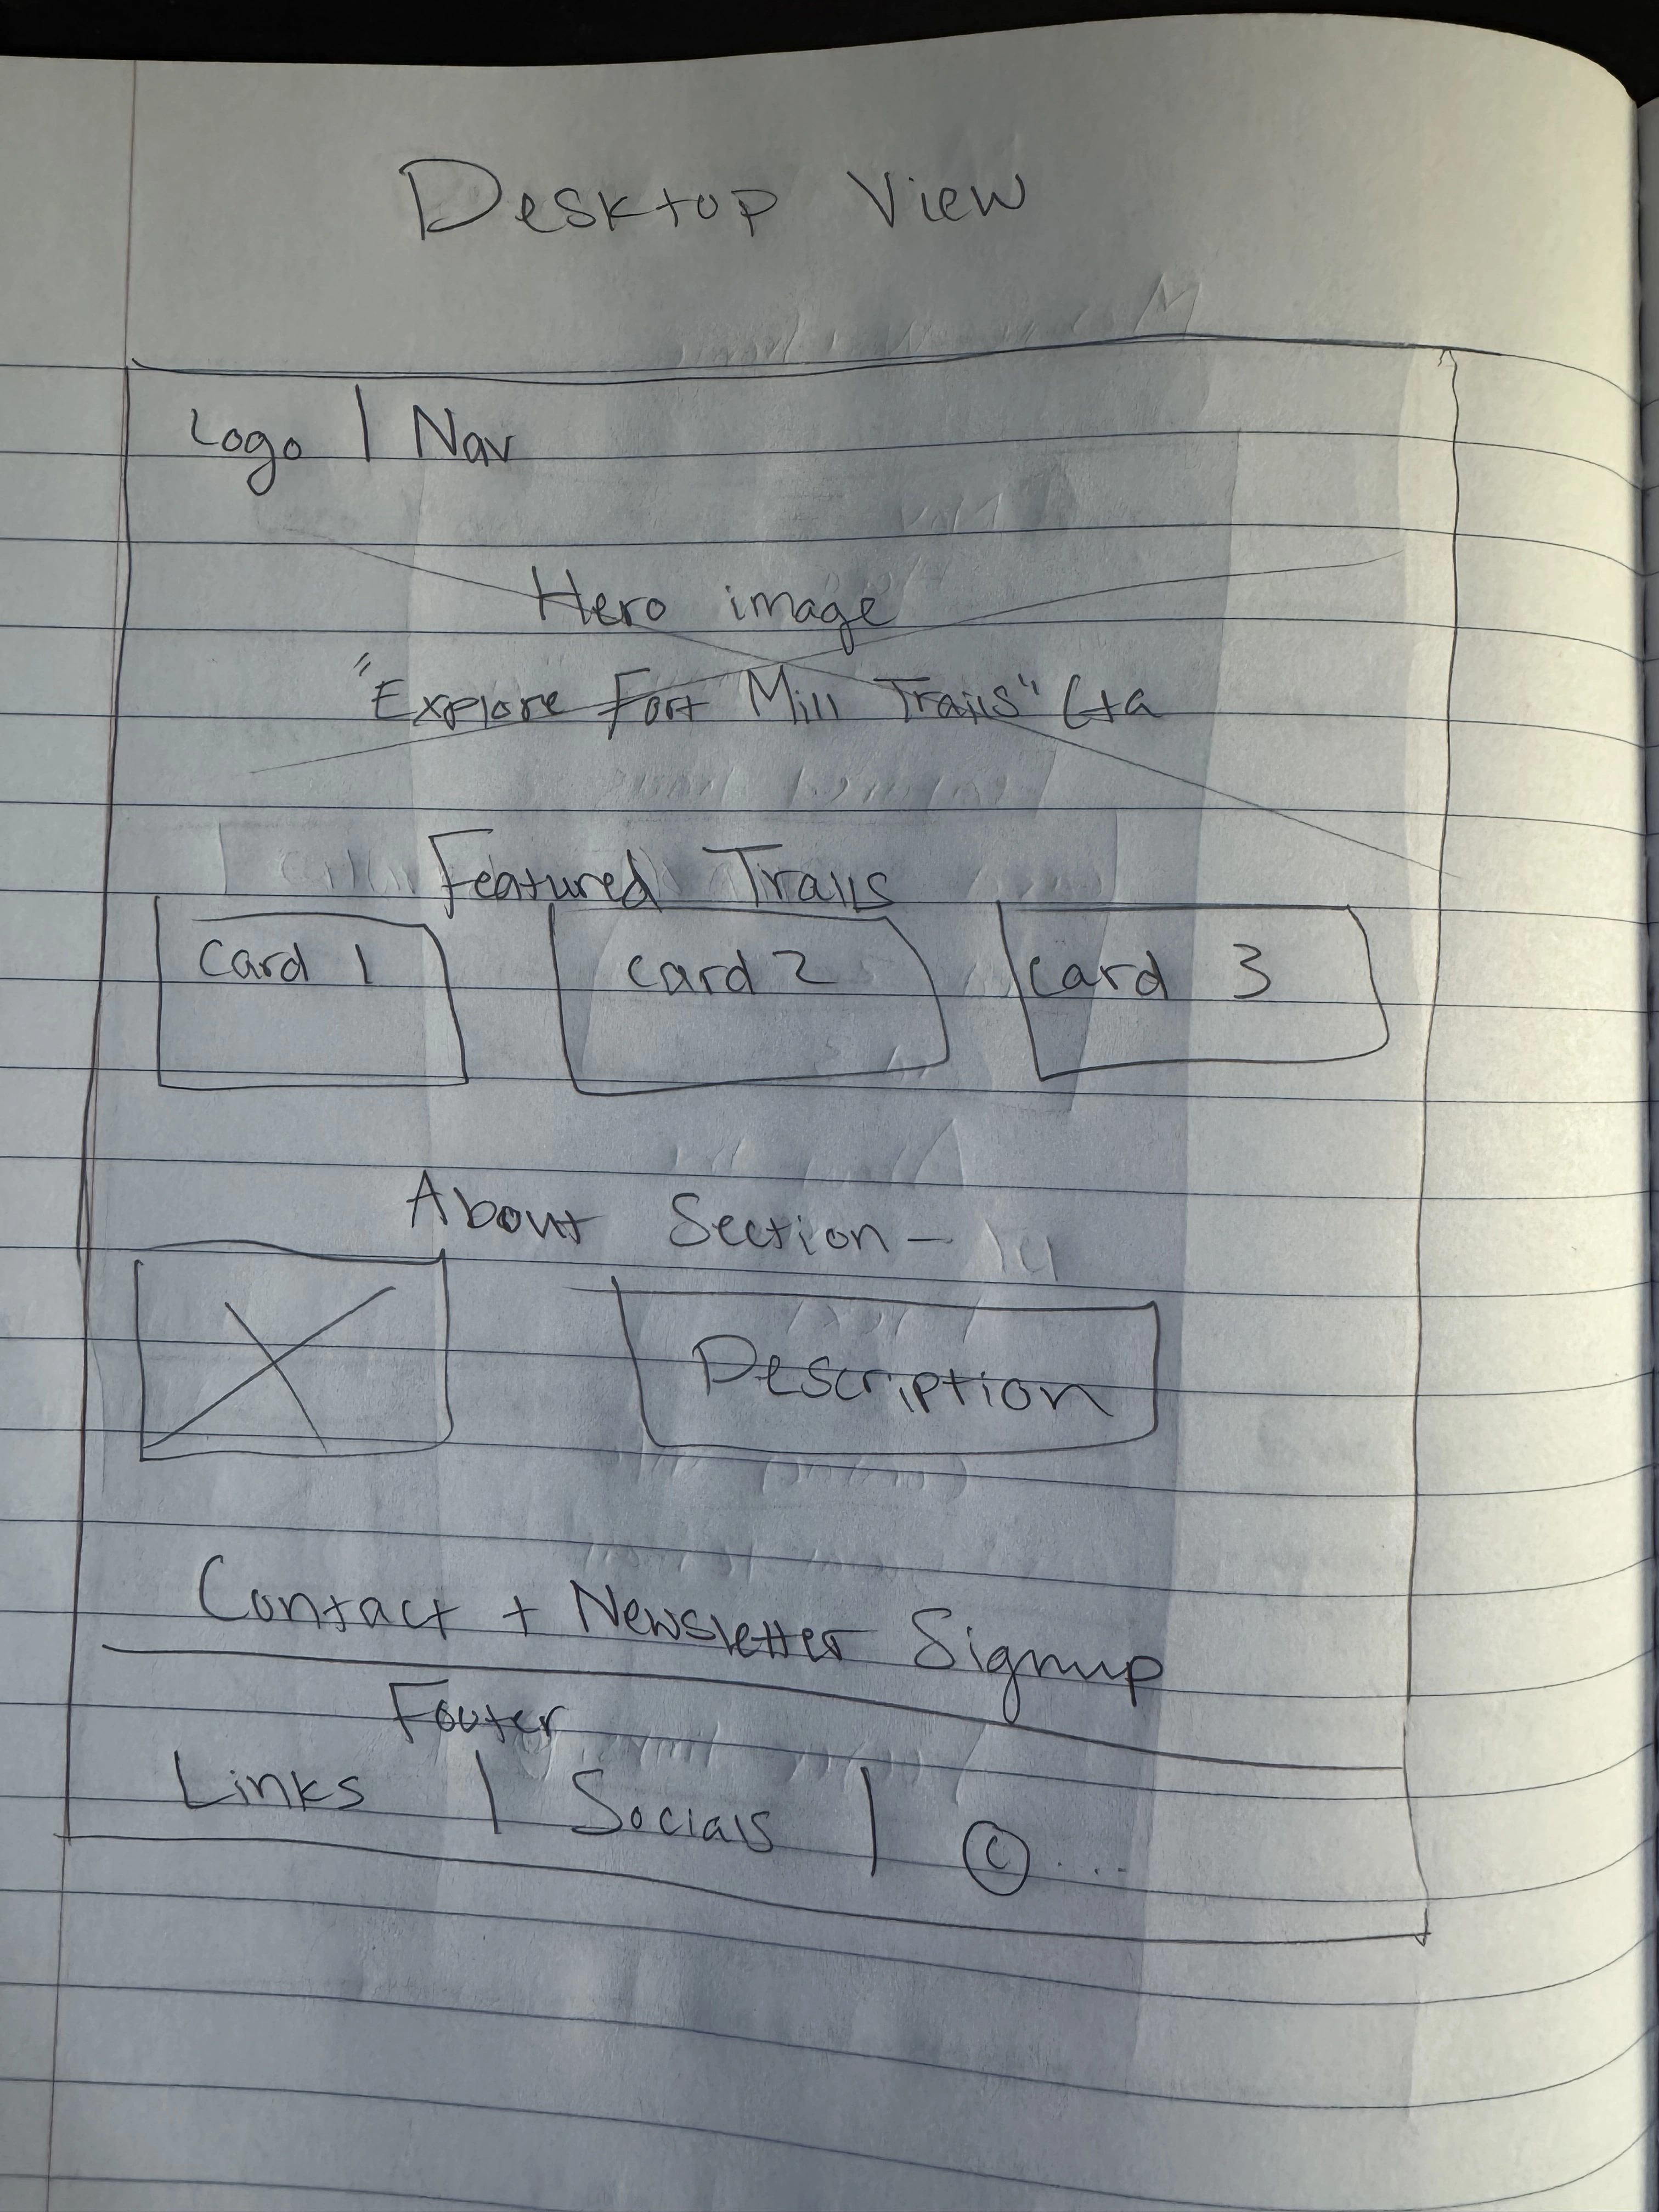 Desktop View
Logo | Nav
Hero image
"Explore Fort Mill Trails" Cta
Featured Trails
Card 1
Card 2
Card 3
About Section -
Description
Contact + Newsletter Signup
Footer
Links | Socials | © ....